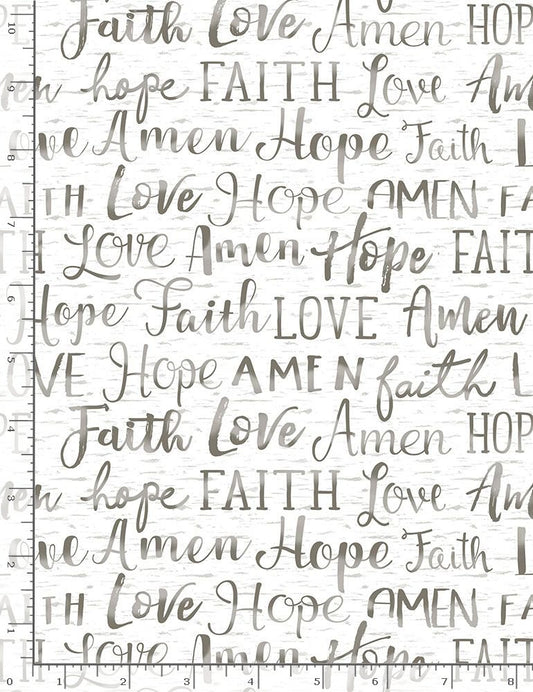 Faith Love Amen HOP
en hope FAITH Love Am
ove Amen Hope Faith L
AITH Love Hope AMEN FA
TH Love Amen Hope FAIT
Hope Faith LOVE Amen
OVE Hope AMEN faith L
Faith Love Amen HOP
en hope FAITH Love Am
ove Amen Hope Faith L
AITH Love Hope AMEN FA
TH Love Amen Hope FAIT
10
9
8
7
6
5
4
3
2
1
0 1 2 3 4 5 6 7 8